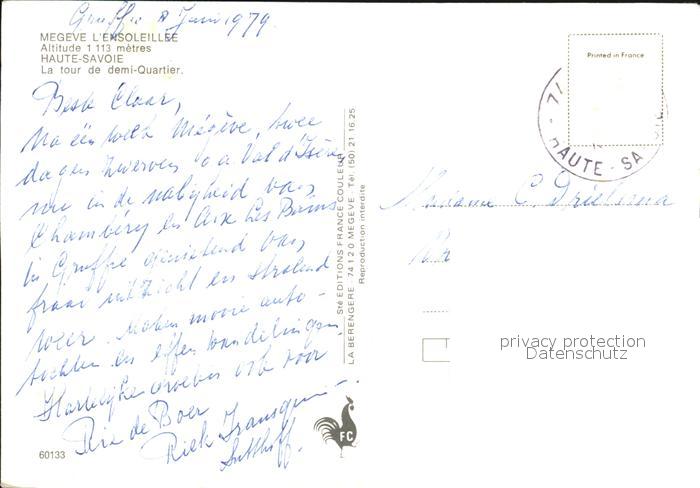 Gruffie 8 Juni 1979.
MEGEVE L'ENSOLEILLEE
Altitude 1 113 mètres
HAUTE-SAVOIE
La tour de demi-Quartier.
Beste Claar,
Na één week Mégève, twee
dagen zwerven o a Val d'Isère,
nu in de nabijheid van
Chambéry en Aix Les Bains
in Gruffie genietend van
fraai uitzicht en stralend
weer. Maken mooie auto-
tochten en effen wandelingen
Hartelijke groeten ook voor
Ria de Boer
Riek
60133
FC
Sté EDITIONS FRANCE COULEUR
LA BERENGERE - 74120 MEGEVE - Tél. (50) 21.16.25
Reproduction interdite
Printed in France
HAUTE - SA
Madame C. Drielsma
privacy protection
Datenschutz